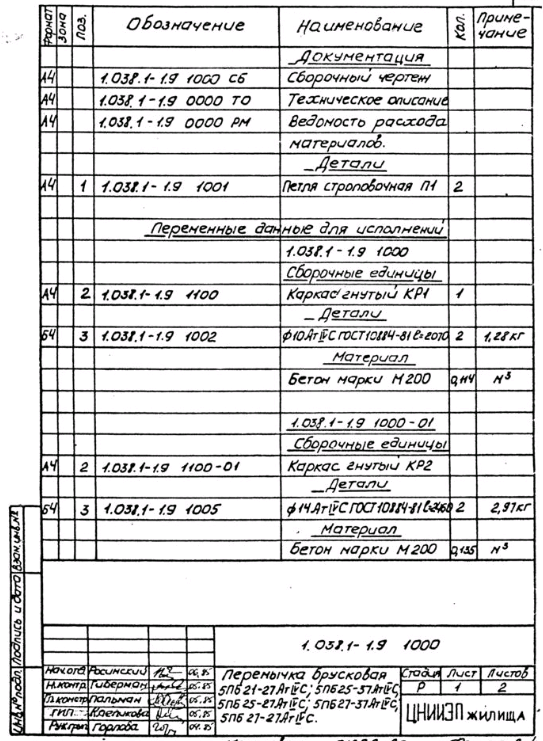 Формат Зона Поз. Обозначение Наименование Кол. Приме-
чание
Документация
А4 1.038.1-1.9 1000 СБ Сборочный чертеж
А4 1.038.1-1.9 0000 ТО Техническое описание
А4 1.038.1-1.9 0000 РМ Ведомость расхода
материалов.
Детали
А4 1 1.038.1-1.9 1001 Петля строповочная П1 2
Переменные данные для исполнений
1.038.1-1.9 1000
Сборочные единицы
А4 2 1.038.1-1.9 1100 Каркас гнутый КР1 1
Детали
БЧ 3 1.038.1-1.9 1002 ф10АтIVС ГОСТ10884-81 ℓ=2070 2 1,28кг
Материал
Бетон марки М200 0,114 м3
1.038.1-1.9 1000-01
Сборочные единицы
А4 2 1.038.1-1.9 1100-01 Каркас гнутый КР2
Детали
БЧ 3 1.038.1-1.9 1005 ф14АтIVС ГОСТ10884-81 ℓ=2460 2 2,97кг
Материал
Бетон марки М200 0,135 м3
Инв.№подл. Подпись и дата Взам.инв.№
1.038.1-1.9 1000
Нач.отд. Росинский 06.85
Н.контр. Гиберман 05.85
Гл.констр. Пальман 05.85
ГИП Клепикова 05.85
Рук.груп. Горлова 04.85
Перемычка брусковая
5ПБ 21-27АтIVС; 5ПБ25-37АтIVС;
5ПБ 25-27АтIVС; 5ПБ27-37АтIVС;
5ПБ 27-27АтIVС.
Стадия Лист Листов
Р 1 2
ЦНИИЭП жилища